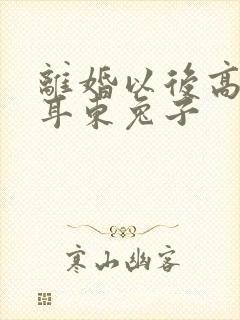 離婚以後高
耳東兔子
寒山幽客